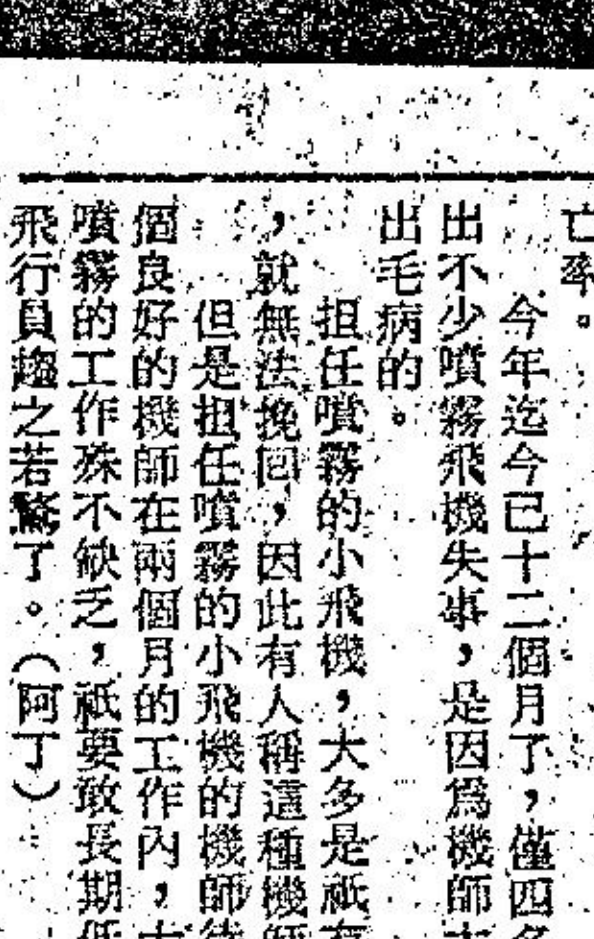 亡率。
今年迄今已十二個月了，僅四名
出不少噴霧飛機失事，是因爲機師
出毛病的。
担任噴霧的小飛機，大多是祇有
，就無法挽回，因此有人稱這種機師
但是担任噴霧的小飛機的機師待
個良好的機師在兩個月的工作內，
噴霧的工作殊不缺乏，祇要政長期低
飛行員趨之若鶩了。（阿丁）